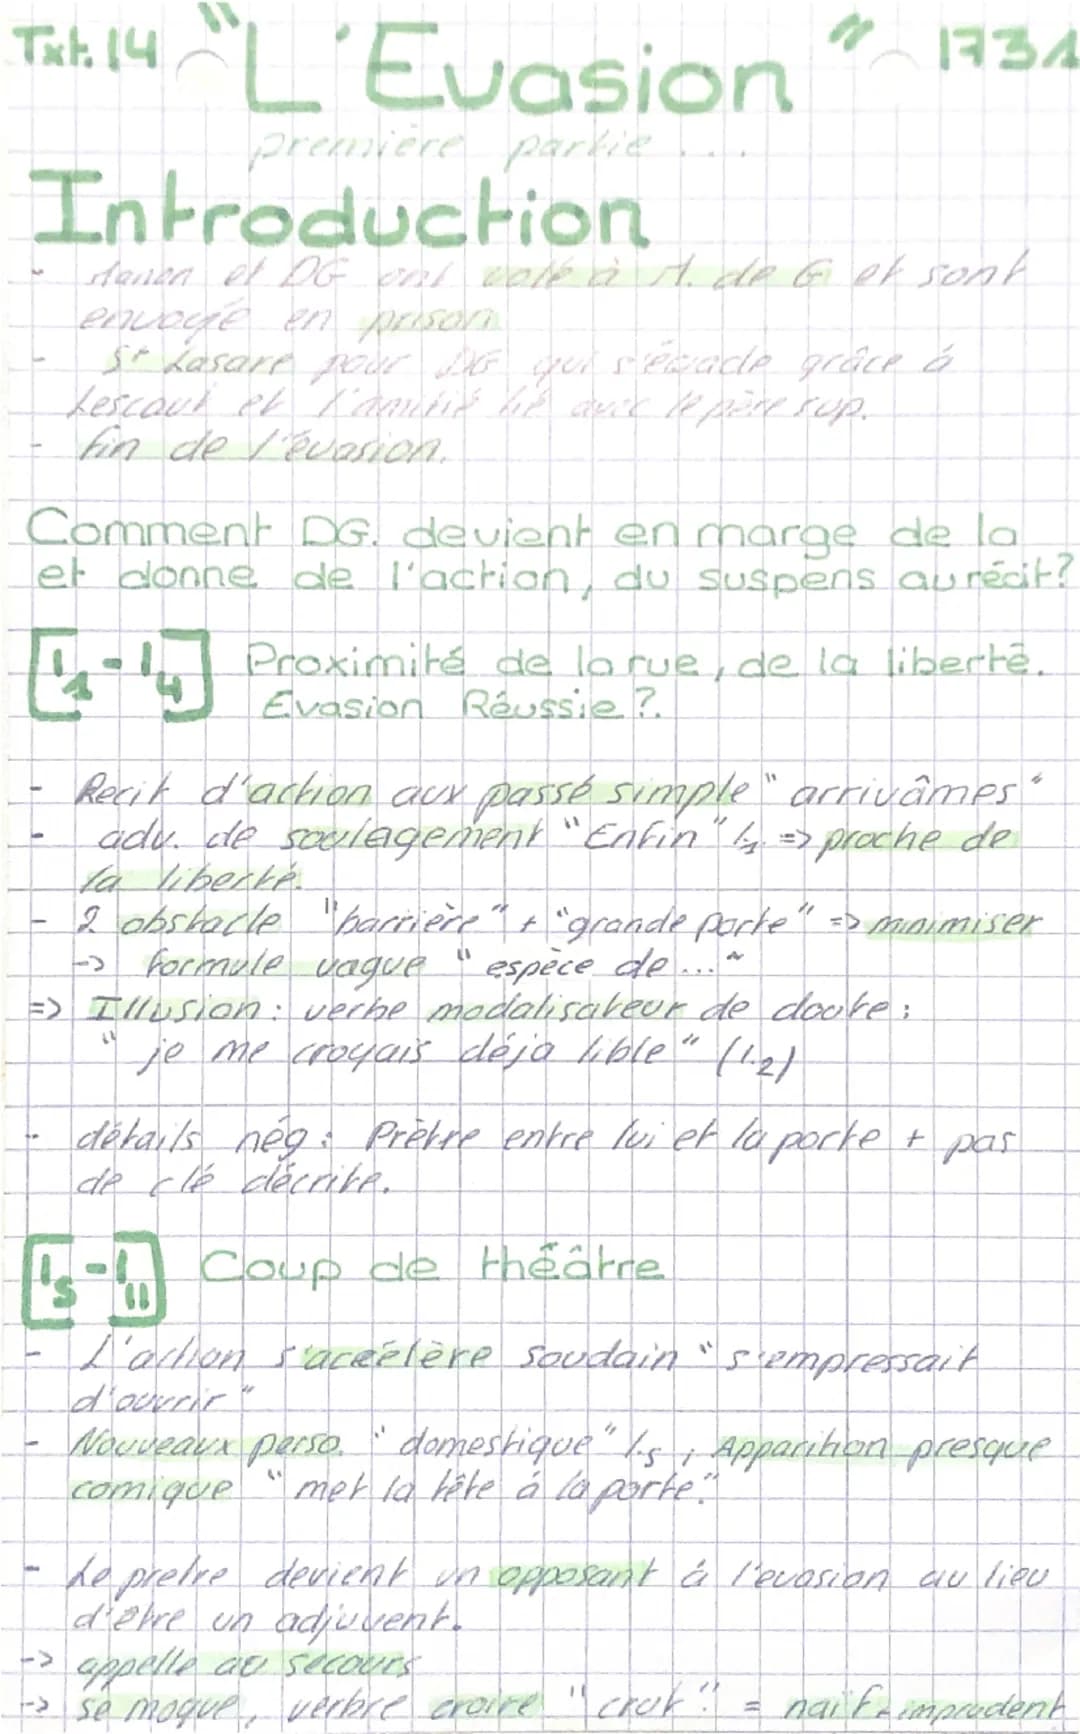 Txt. 14 "L'Evasion" 1731
première partie ...
Introduction
- Manon et DG ont volé à A. de G et sont
envoyé en prison
- St Lasare pour DG qui s'évade grâce à
Lescaut et l'amitié lié avec le père sup.
- fin de l'évasion.
Comment DG. devient en marge de la
et donne de l'action, du suspens au récit?
[l1 - l4] Proximité de la rue, de la liberté.
Evasion Réussie ?.
- Recit d'action aux passé simple "arrivâmes"
- adv. de soulagement "Enfin" l.1 => proche de
la liberté.
- 2 obstacle "barrière" + "grande porte" => minimiser
-> formule vague "espèce de ..."
=> Illusion : verbe modalisateur de doute :
"je me croyais déja lible" (l.2)
- détails nég : Prètre entre lui et la porte + pas
de clé décrite.
[l5 - l11] Coup de théâtre
- L'action s'accélère soudain "s'empressait
d'ouvrir"
- Nouveaux perso. "domestique" l.5 ; Apparition presque
comique "met la tête à la porte."
- Le pretre devient un opposant à l'evasion au lieu
d'être un adjuvent.
-> appelle au secours
-> se moque, verbre croire "crut" = naïf, imprudent